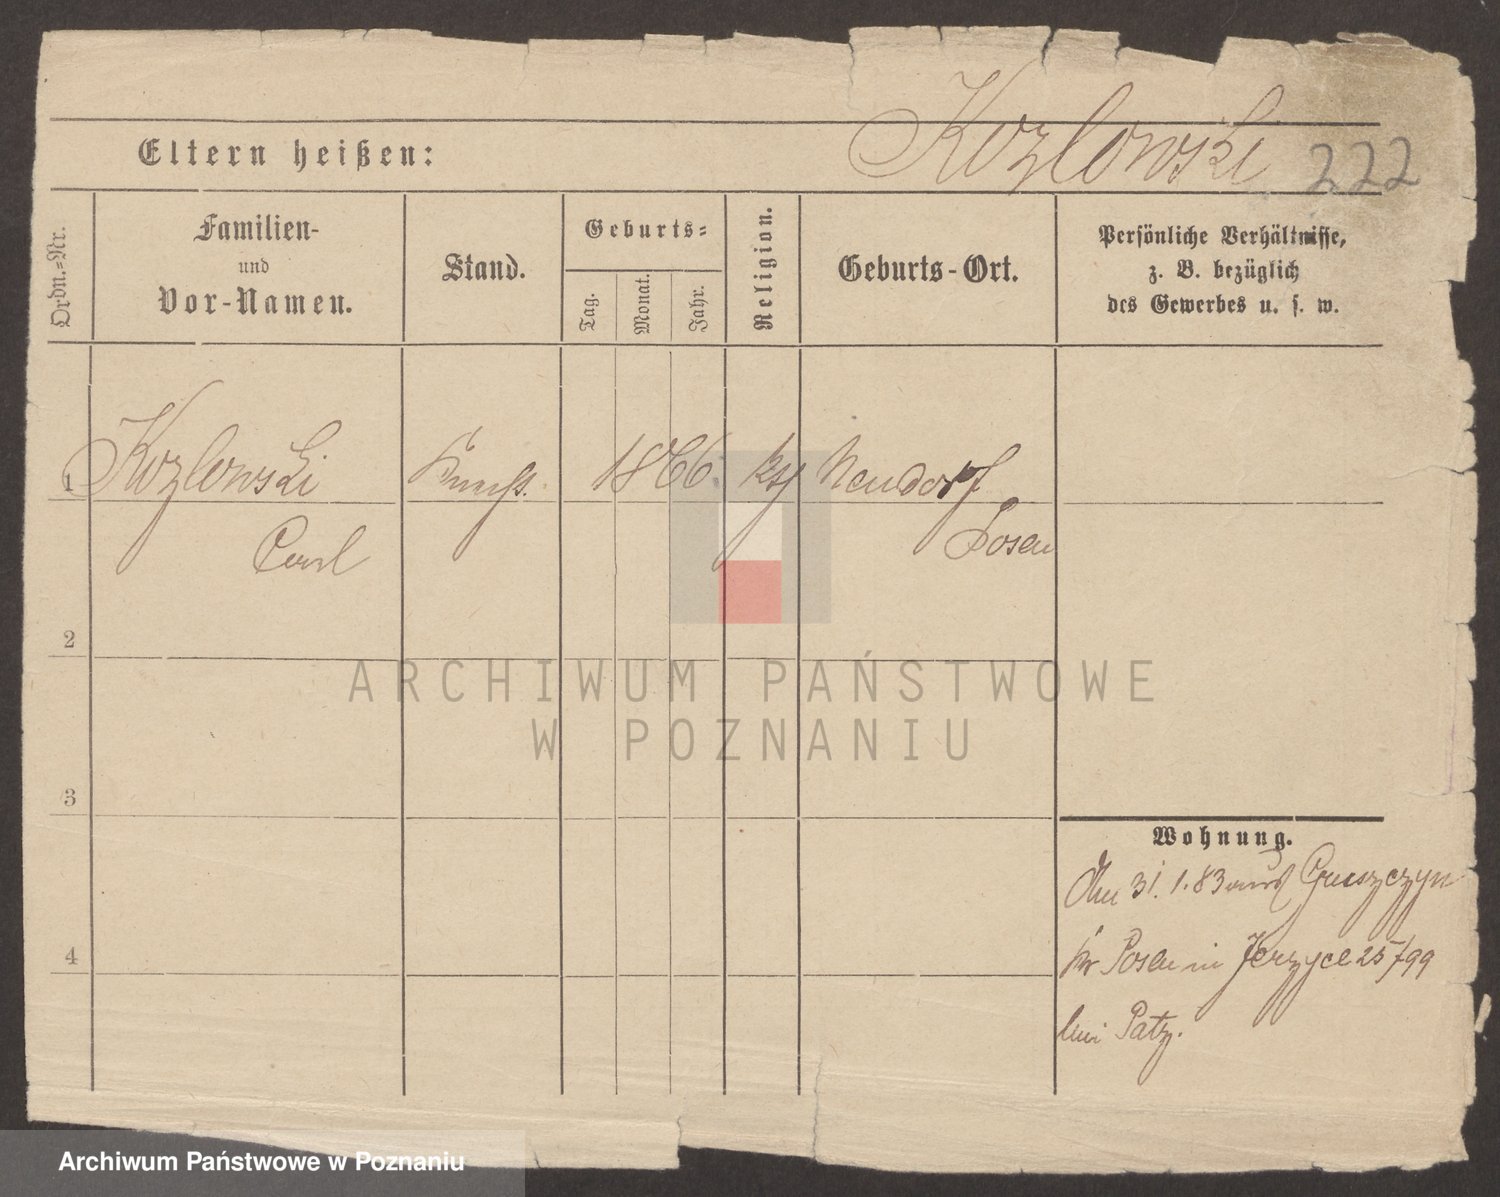 Kozlowski
222
Eltern heißen:
Ordn.-Nr.
Familien-
und
Vor-Namen.
Stand.
Geburts-
Tag.
Monat.
Jahr.
Religion.
Geburts-Ort.
Persönliche Verhältnisse,
z. B. bezüglich
des Gewerbes u. s. w.
1
Kozlowski Knecht. 1866. kth Neudorf
Carl Posen
2
ARCHIWUM PAŃSTWOWE
W POZNANIU
3
Wohnung.
Am 31.1.83 aus Gruszczyn
Kr Posen in Jerzyce 25/99
bei Patz.
4
Archiwum Państwowe w Poznaniu